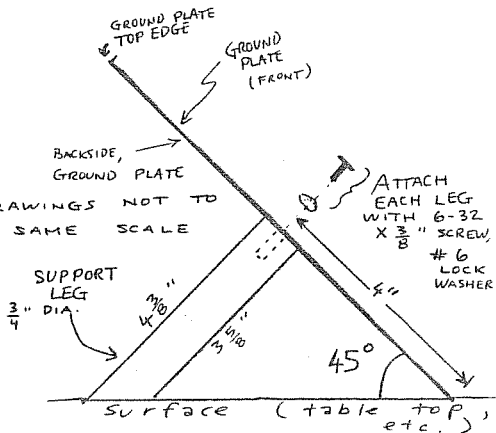 GROUND PLATE
TOP EDGE
GROUND
PLATE
(FRONT)
BACKSIDE,
GROUND PLATE
RAWINGS NOT TO
SAME SCALE
ATTACH
EACH LEG
WITH 6-32
X 3/8" SCREW,
# 6
LOCK
WASHER
SUPPORT
LEG
3/4" DIA.
4 3/8"
3 5/8"
4"
45°
surface (table top,
etc.)